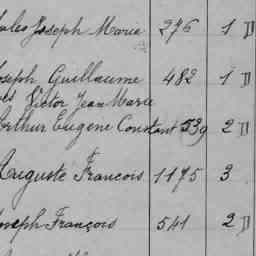 Joseph Maria 276 1 D
Joseph Guillaume 482 1 D
Victor Jean Marie
Arthur Eugène Constant 539 2 D
Auguste Francois 1175 3
Joseph François 541 2 D